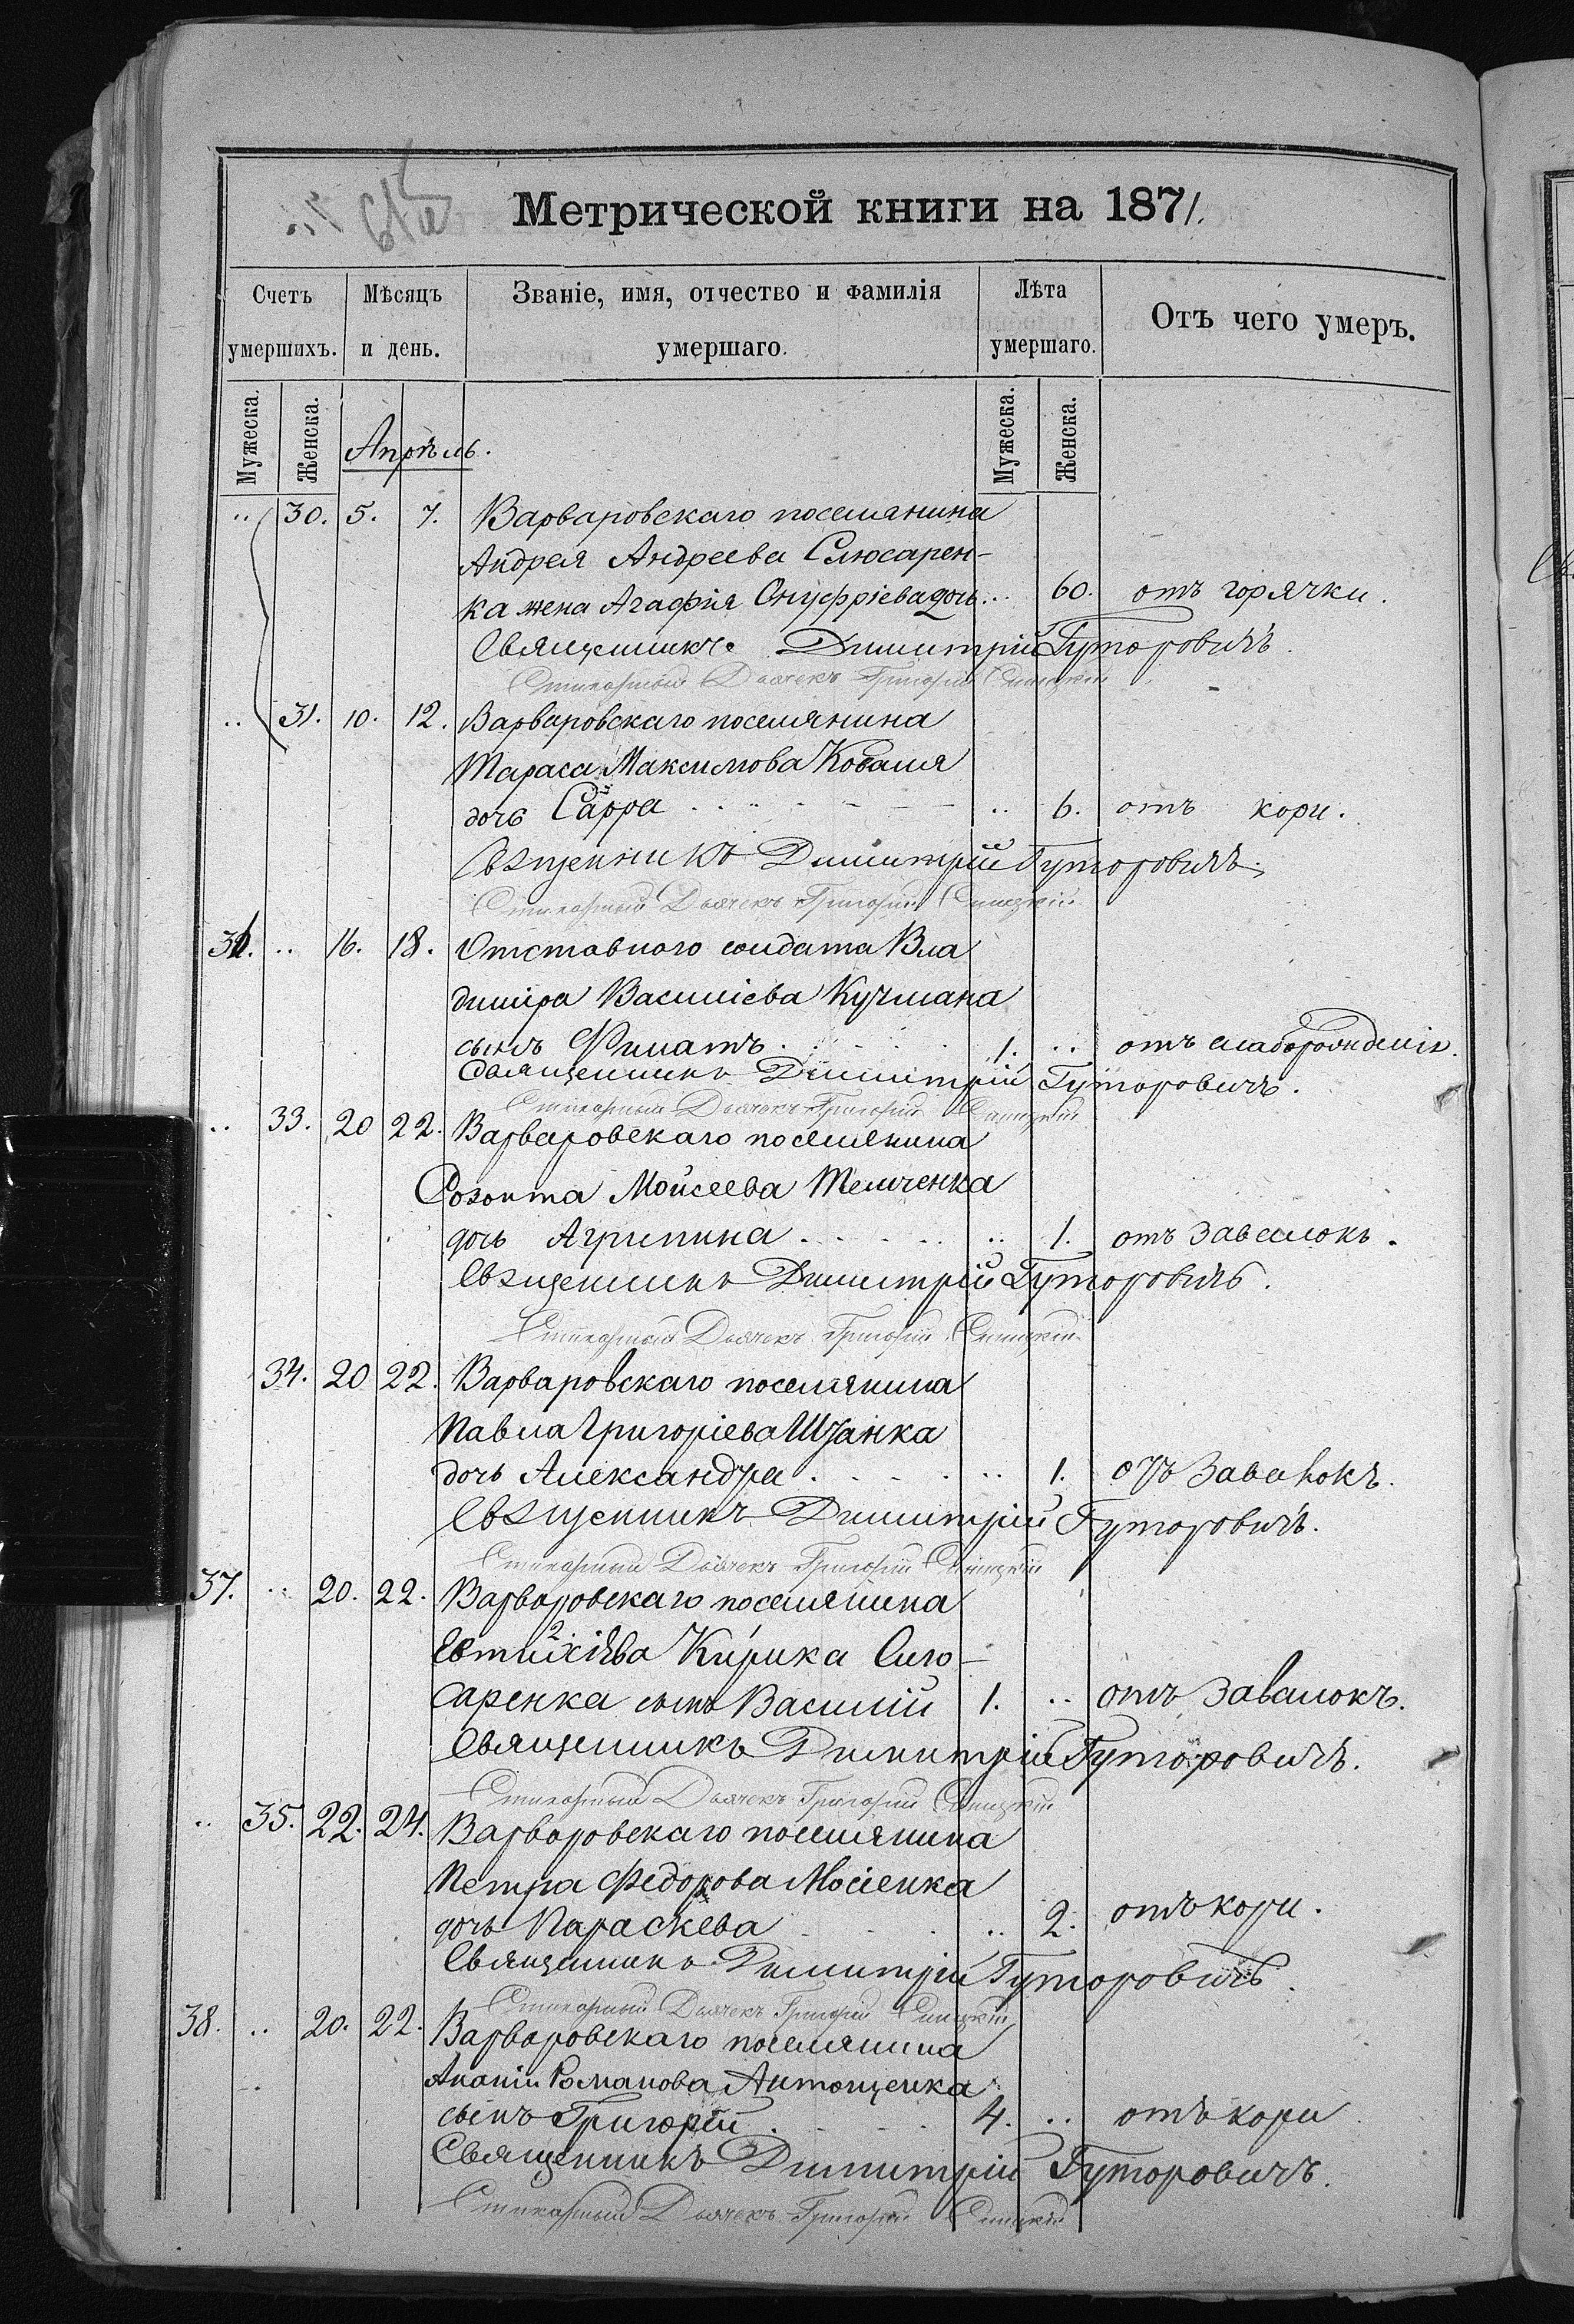 Метрической книги на 1871.
Счетъ умершихъ.
Мѣсяцъ и день.
Званіе, имя, отчество и фамилія умершаго.
Лѣта умершаго.
Отъ чего умеръ.
Мужеска. Женска. Мужеска. Женска.
Апрѣль.
.. 30. 5. 7. Варваровскаго поселянина
Андрея Андреева Слюсарен-
ка жена Агафія Онуфріева дочь .. 60. отъ горячки.
Священникъ Димитрій Гуторовичъ.
Стихарный Дьячекъ Григорій
.. 31. 10. 12. Варваровскаго поселянина
Тараса Максимова Коваля
дочь Сарра .. 6. отъ кори.
Священникъ Димитрій Гуторовичъ.
Стихарный Дьячекъ Григорій
36. .. 16. 18. Отставного солдата Вла
диміра Василіева Кучмана
сынъ Филатъ 1. .. отъ слаборожденія.
Священникъ Димитрій Гуторовичъ.
Стихарный Дьячекъ Григорій
.. 33. 20 22. Варваровскаго поселянина
Созонта Моисеева Темченка
дочь Агрипина .. 1. отъ завалокъ.
Священникъ Димитрій Гуторовичъ.
Стихарный Дьячекъ Григорій
34. 20 22. Варваровскаго поселянина
Павла Григоріева
дочь Александра .. 1. отъ завалокъ.
Священникъ Димитрій Гуторовичъ.
Стихарный Дьячекъ Григорій
37. .. 20. 22. Варваровскаго поселянина
Евтихіева Кирика Слю-
саренка сынъ Василій 1. .. отъ завалокъ.
Священникъ Димитрій Гуторовичъ.
Стихарный Дьячекъ Григорій
.. 35. 22. 24. Варваровскаго поселянина
Петра Федорова Мосіенка
дочь Параскева .. 2. отъ кори.
Священникъ Димитрій Гуторовичъ.
Стихарный Дьячекъ Григорій
38. .. 20. 22. Варваровскаго поселянина
Ананіи Романова Антощенка
сынъ Григорій 4. .. отъ кори
Священникъ Димитрій Гуторовичъ.
Стихарный Дьячекъ Григорій